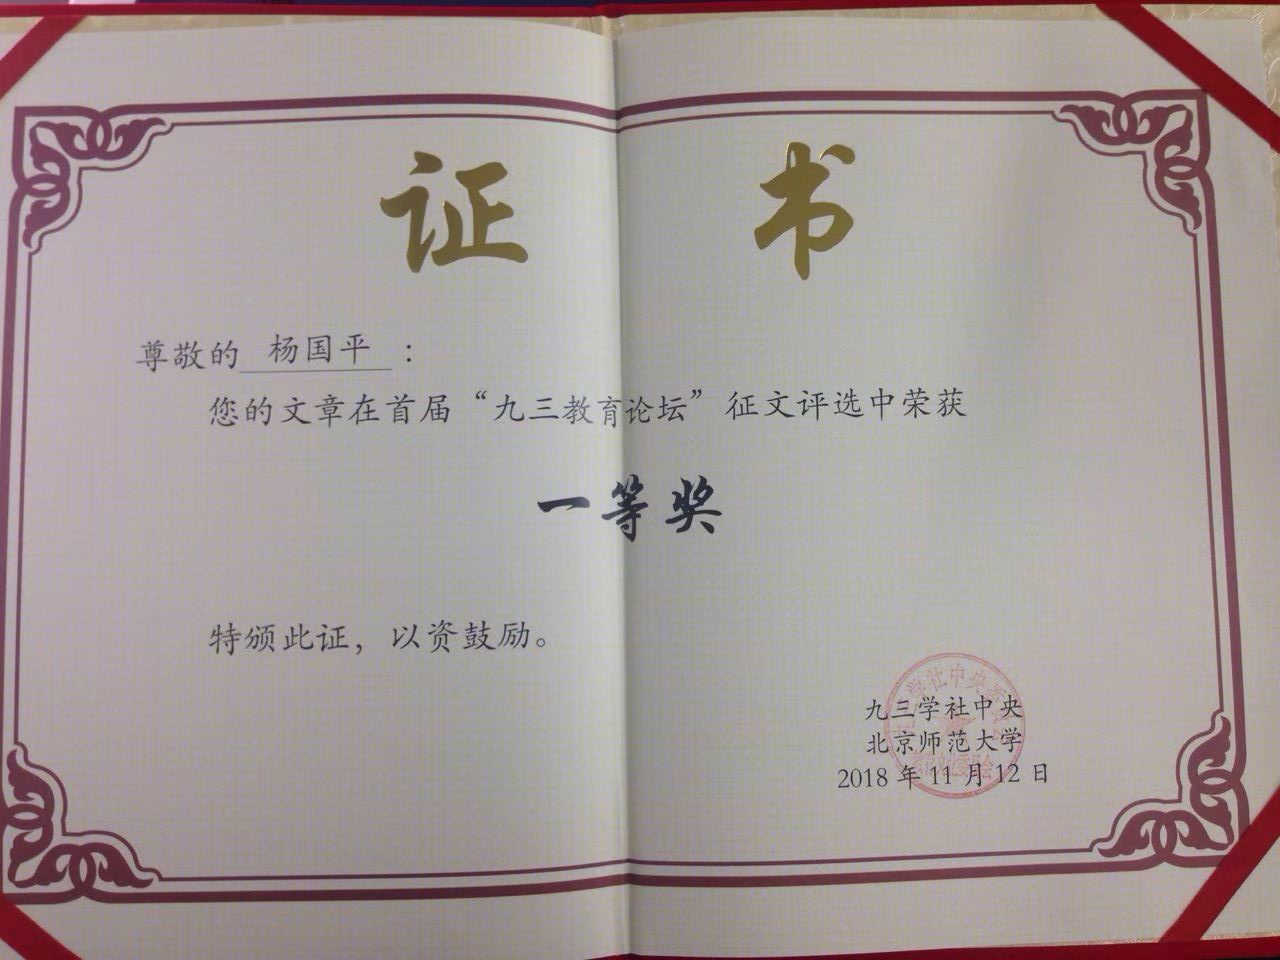 证书
尊敬的 杨国平 ：
您的文章在首届“九三教育论坛”征文评选中荣获
一等奖
特颁此证，以资鼓励。
九三学社中央
北京师范大学
2018 年 11 月 12 日